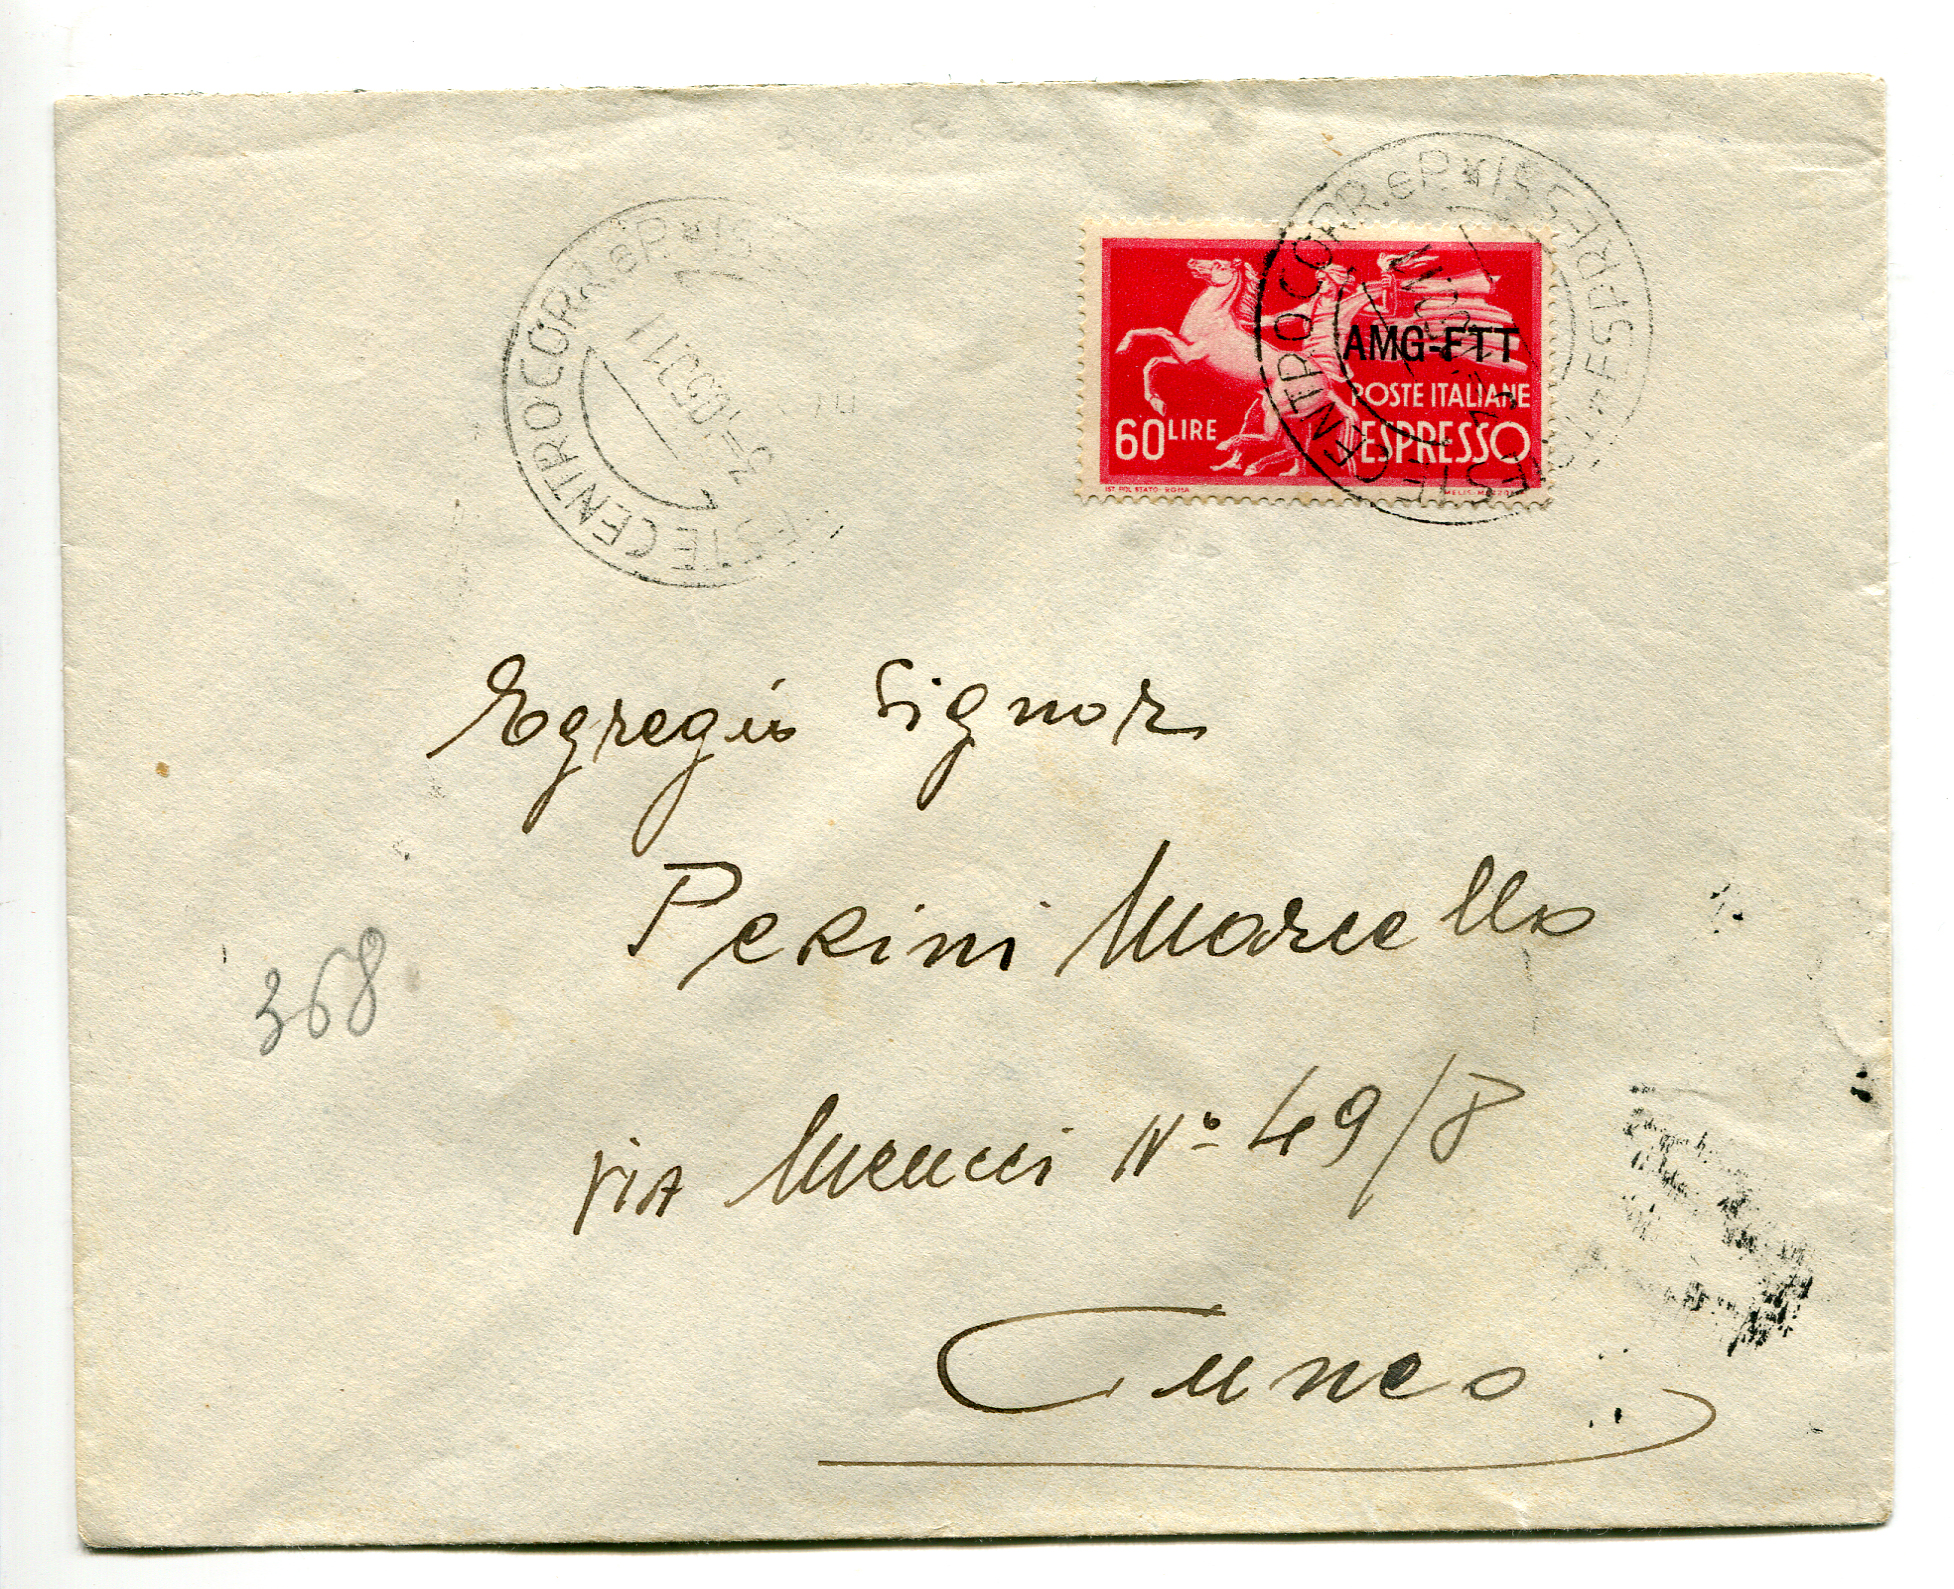 CENTRO CORR. e P.
3-10.50.11
CENTRO CORR. e P. ESPRESSI
AMG-FTT
POSTE ITALIANE
60 LIRE
ESPRESSO
IST. POL. STATO - ROMA
Egregio Signor
Perini Marcello
368
VIA Meucci N° 49/8
Cuneo